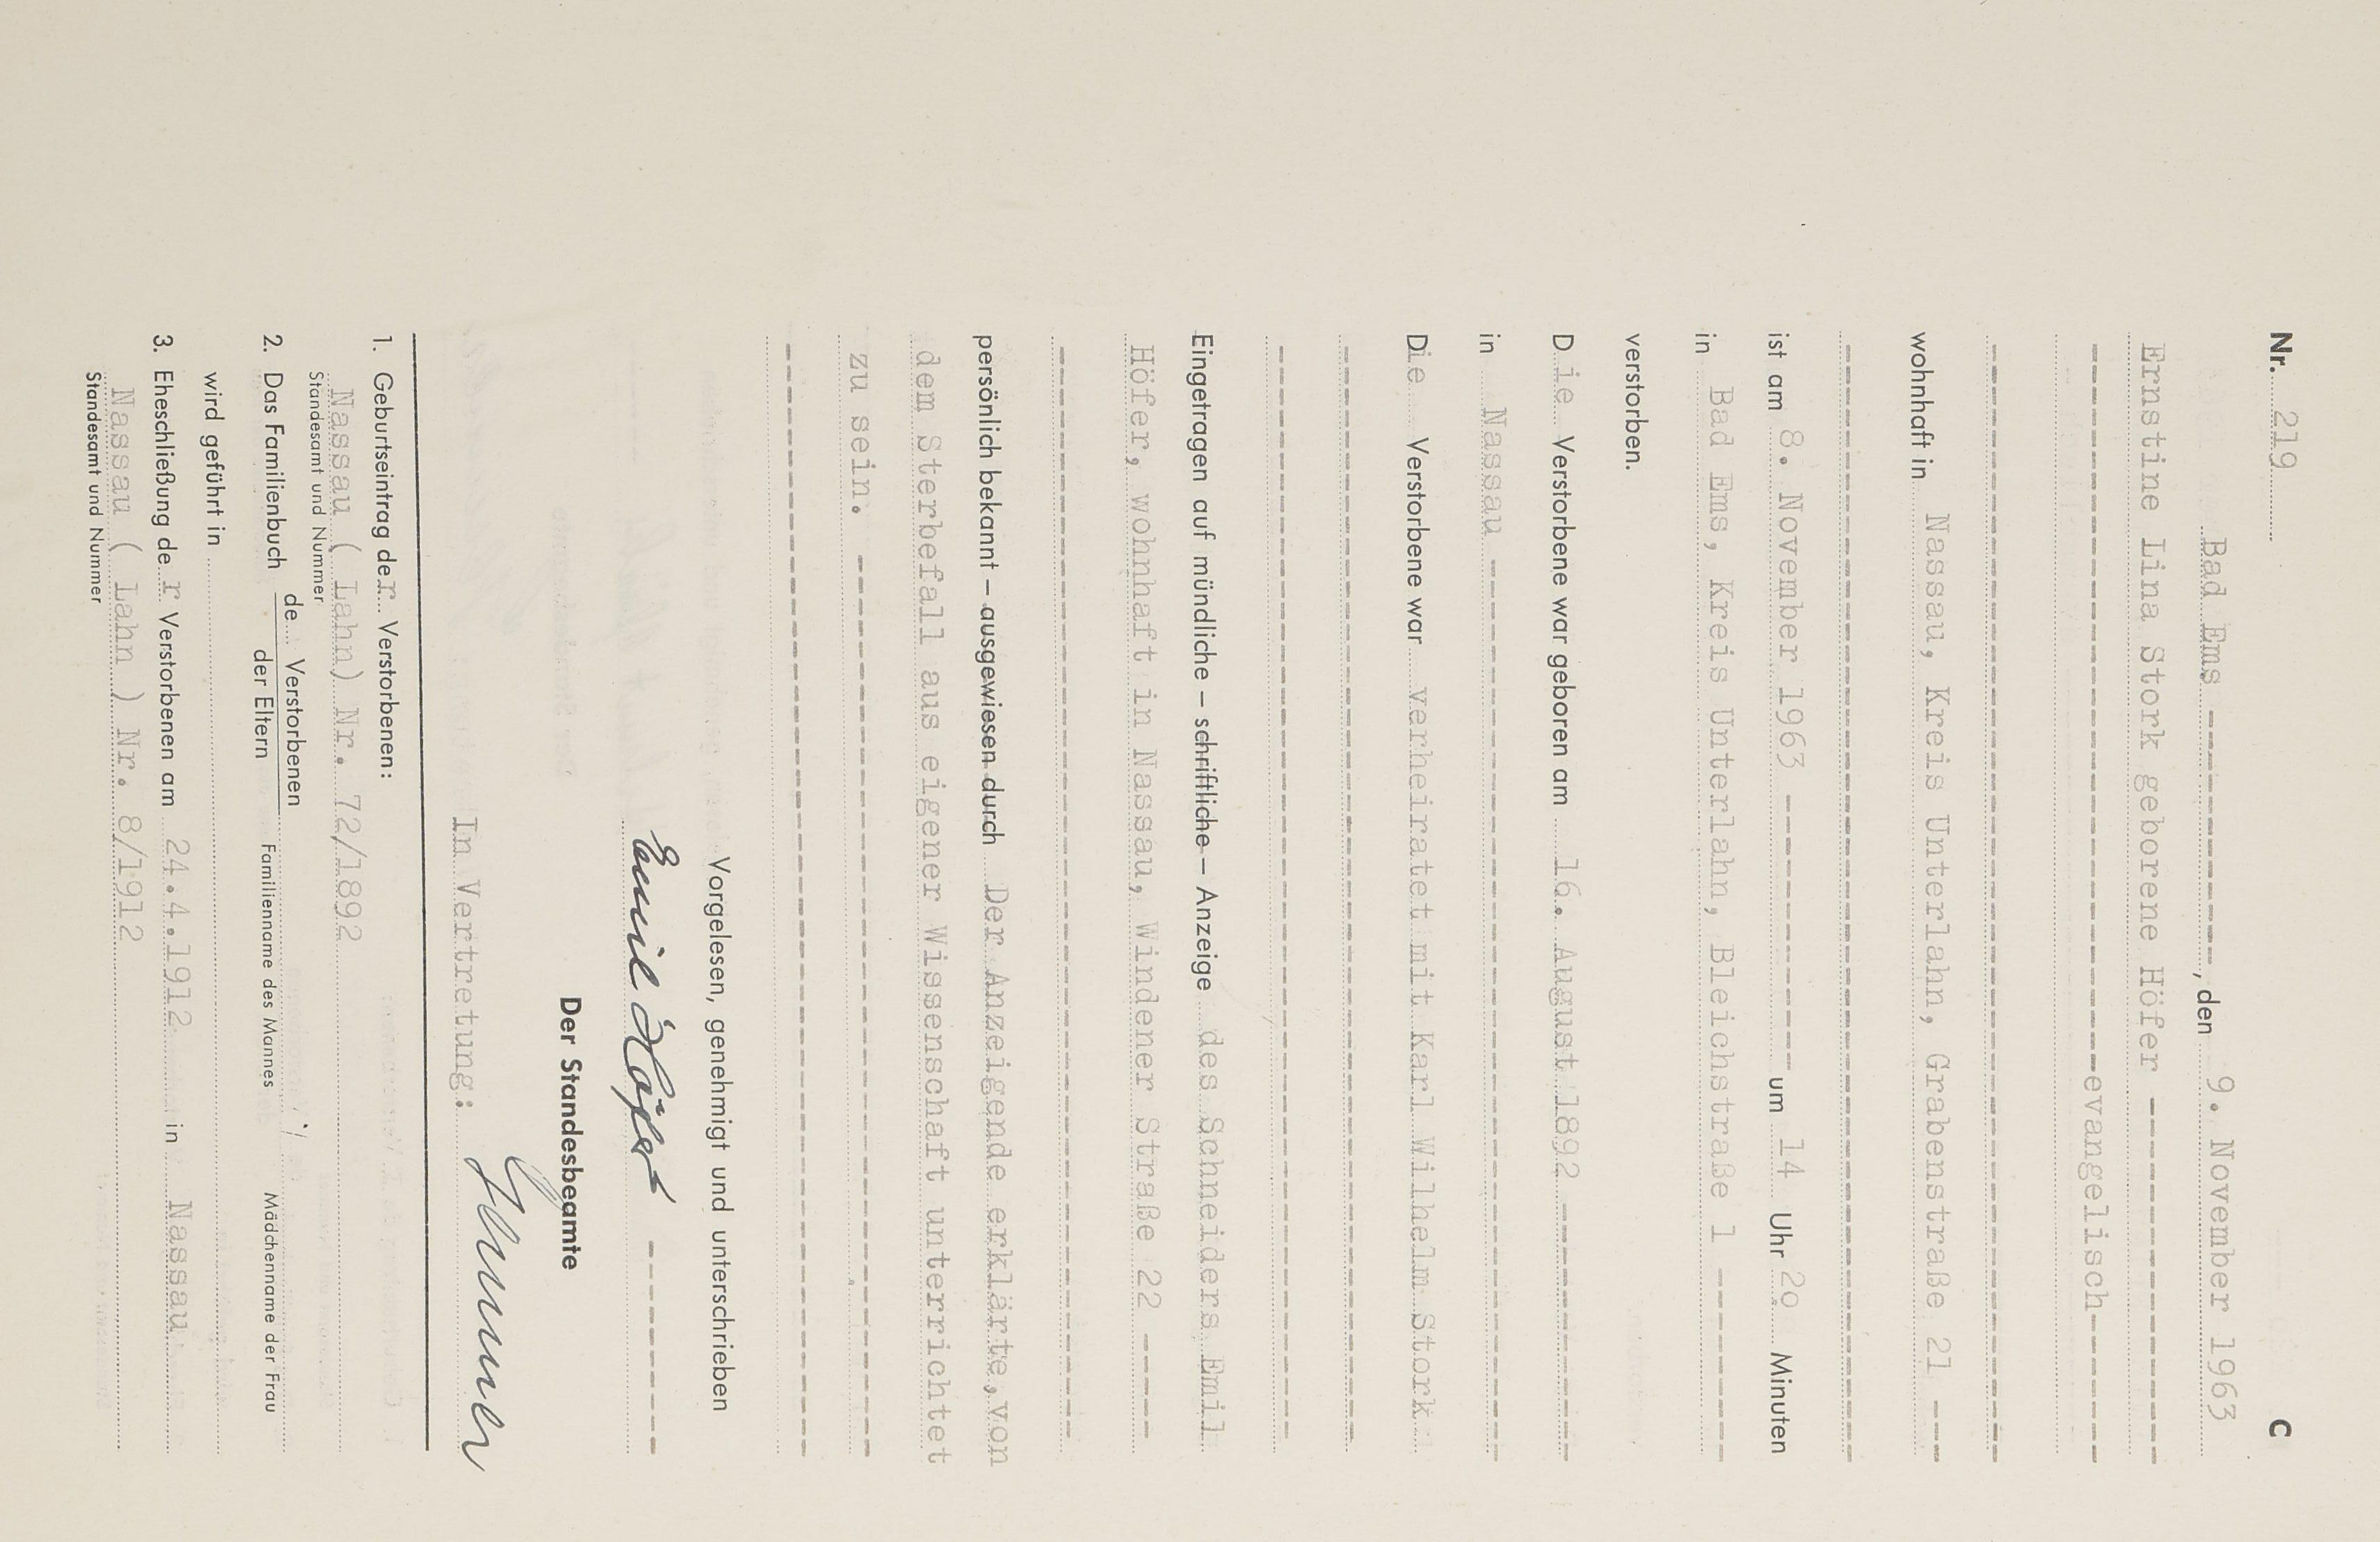 Nr. 219 C
Bad Ems, den 9. November 1963
Ernstine Lina Stork geborene Höfer
evangelisch
wohnhaft in Nassau, Kreis Unterlahn, Grabenstraße 21
ist am 8. November 1963 um 14 Uhr 20 Minuten
in Bad Ems, Kreis Unterlahn, Bleichstraße 1
verstorben.
Die Verstorbene war geboren am 16. August 1892
in Nassau
Die Verstorbene war verheiratet mit Karl Wilhelm Stork
Eingetragen auf mündliche – schriftliche – Anzeige des Schneiders Emil
Höfer, wohnhaft in Nassau, Windener Straße 22
persönlich bekannt – ausgewiesen durch Der Anzeigende erklärte, von
dem Sterbefall aus eigener Wissenschaft unterrichtet
zu sein.
Vorgelesen, genehmigt und unterschrieben
Emil Höfer
Der Standesbeamte
In Vertretung:
1. Geburtseintrag der Verstorbenen:
Nassau ( Lahn) Nr. 72/1892
Standesamt und Nummer
2. Das Familienbuch de Verstorbenen
der Eltern
Familienname des Mannes Mädchenname der Frau
wird geführt in
3. Eheschließung der Verstorbenen am 24.4.1912 in Nassau
Nassau ( Lahn ) Nr. 8/1912
Standesamt und Nummer